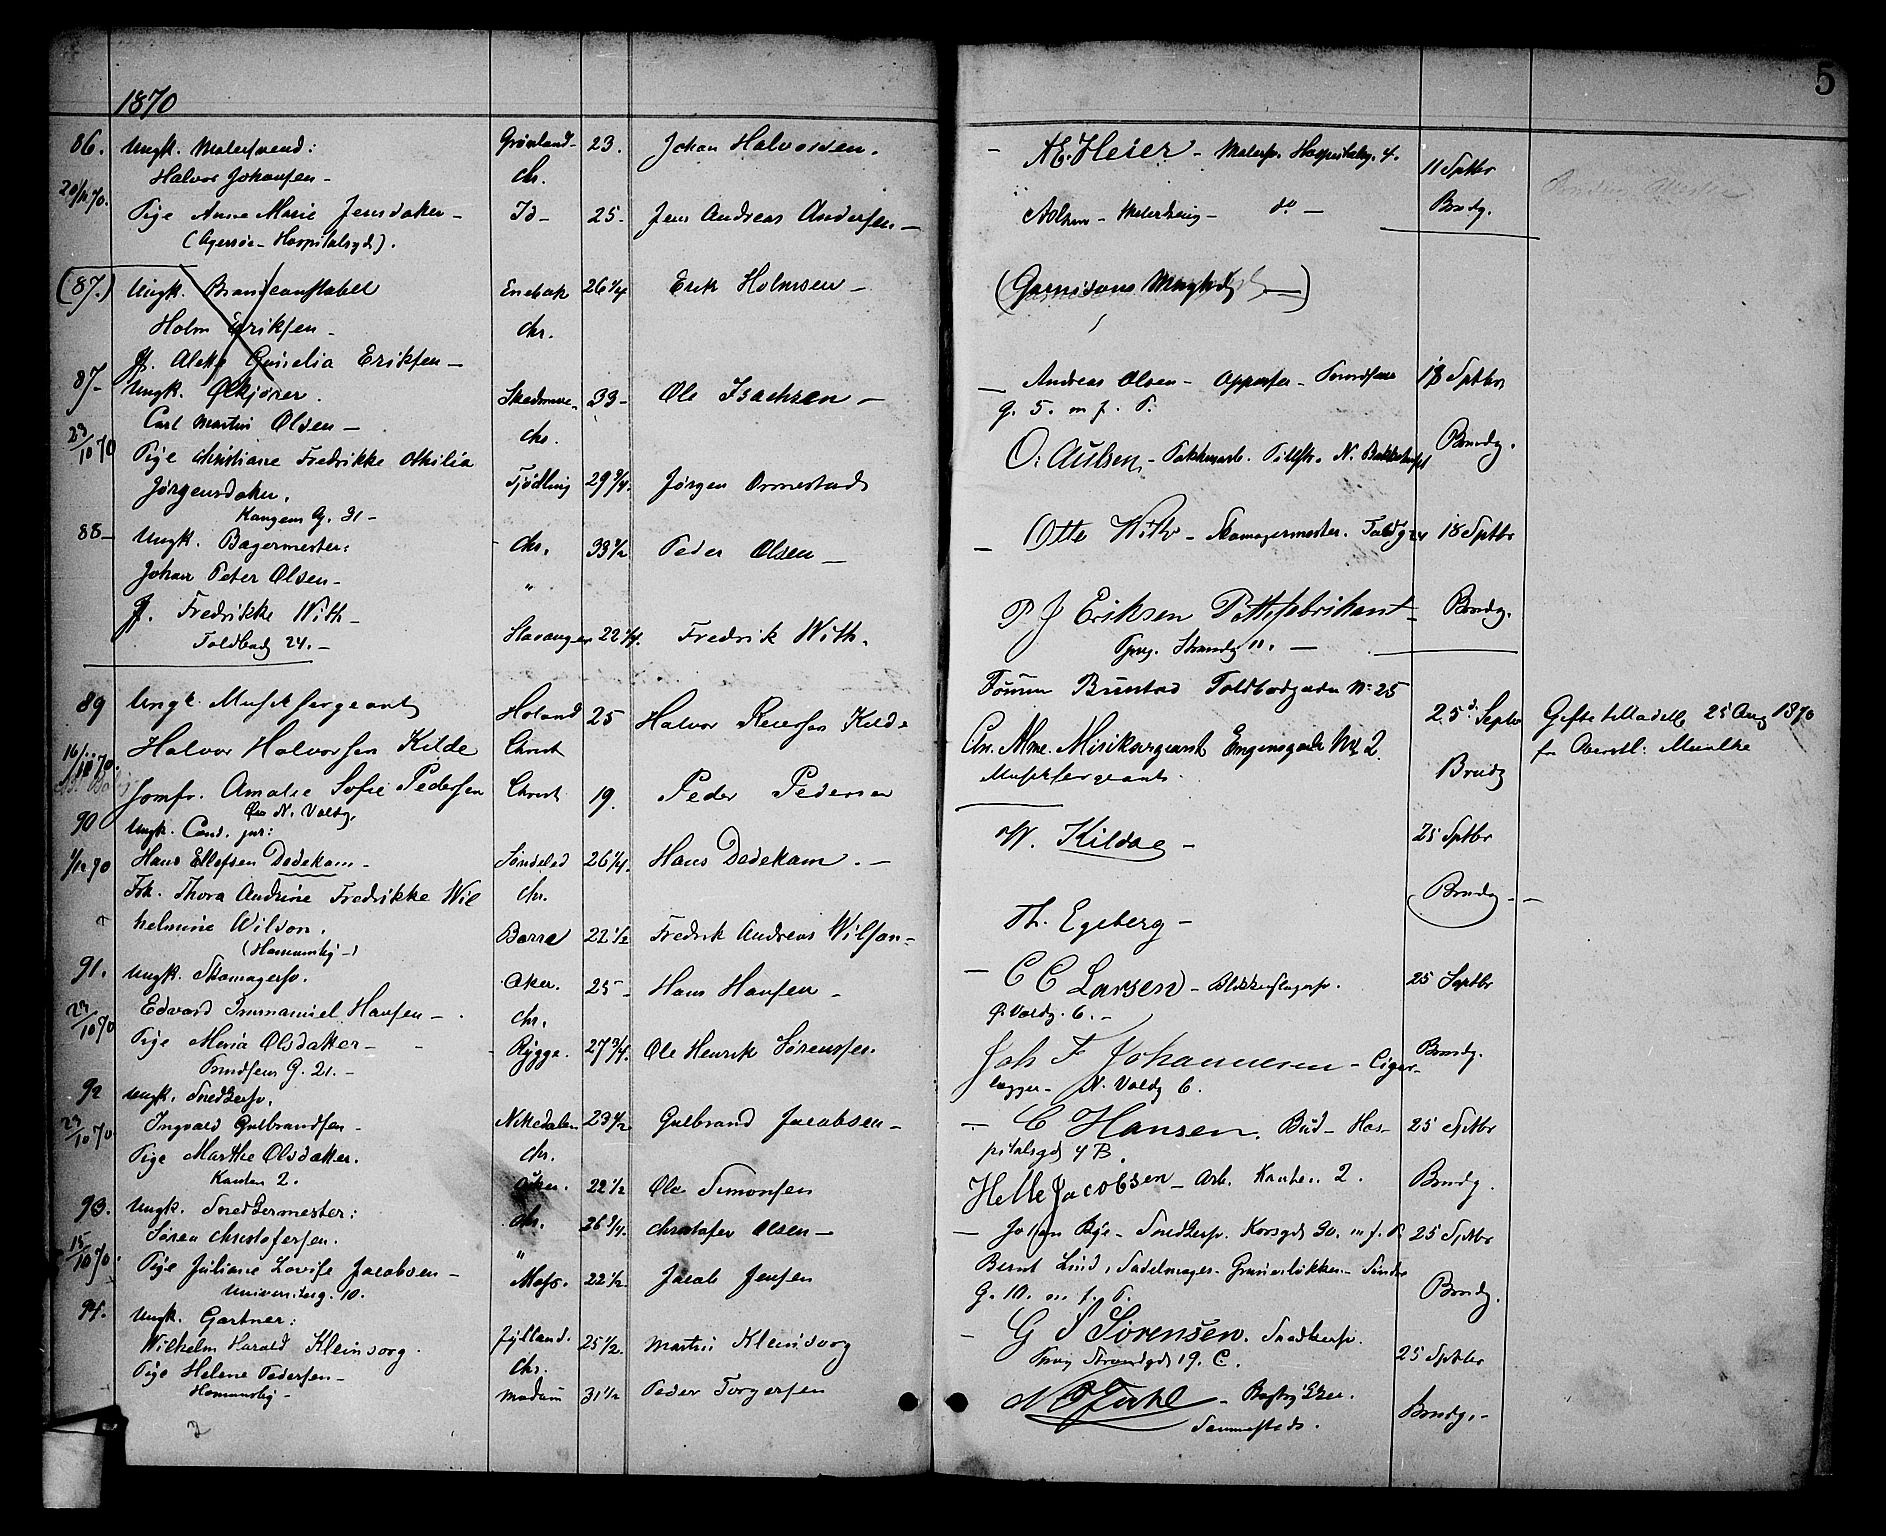 1870
5
86. Ungk. Malersvend: Grønland- 23. Johan Halvorsen. - A.E. Heier - Malersv. Hospitalsg. 4. 11 Sptbr
Halvor Johansen - Chr.
20/11 70. Pige Anne Marie Jensdatter - Id - 25- Jens Andreas Andersen - A Olsen - Malerdreng - do - Brudg.
(Agersøe - Hospitalsgd).
(87.) Ungk. Brandconstabel Enebak 26 1/4 Erik Holmsen - (Garnisons Mnghd -)
Holm Eriksen - Chr.
Jf. Alette Eriksen -
87- Ungk. Ølkjører. Skedsmoe- 33- Ole Isachsen - - Andreas Olsen - Opperser - 18 Sptbr
Carl Martin Olsen - Chr. G. 5. m. f. P.
23/10 70 Pige Christiane Fredrikke Othilia O. Aulsen - Pakhusarb. Pilestr. N. Brudg.
Jørgensdatter. Tjødling 29 3/4. Jørgen Ormestad
Kongens G. 31 -
88- Ungk. Bagermester: Chr. 33 1/2 Peder Olsen - - Otto With - Skomagermester. Toldbg 24 18 Sptbr
Johan Peter Olsen - "
Jf. Fredrikke With - Stavanger 22 1/4. Fredrik With. P J Eriksen Pottefabrikant - Brudg.
Toldbodg 24. - Grug. Strandg 11. -
89 Ungk. Musiksergeant Høland 25 Halvor Reiersen Kilde Bunstad Toldbodgaden No 25 25d Septbr Gifte 25 Aug 1870
16/10 70. Halvor Halvorsen Kilde Christ Chr. Alme. Musiksergeant No 2 fr Oberstl:
Musiksergeant. Brudg
Jomfr. Amalie Sofie Pedersen Christ 19. Peder Pedersen
Øv N. Voldg.
90 Ungk. Cand. jur: W. Kildal - 25 Sptbr
1/12 70 Hans Ellefsen Dedekam - Søndeled 26 1/4. Hans Dedekam. -
Frk. Thora Andrine Fredrikke Wil Chr. Brudg -
helmine Wilson. Borre 22 1/2 Fredrik Andreas Wilson - Th. Egeberg -
(Homansby -)
91. Ungk. Skomagersv. Aker. 25- Hans Hansen - - C C Larsen - Blikkenslagersv. 25 Septbr
23/10 70 Edvard Immanuel Hansen - Chr. Ø. Voldg. 6. -
Pige Maria Olsdatter - Rygge. 27 3/4. Ole Henrik Sørensen. Joh F Johannesen - Cigar- Brudg.
G. 21. - lægger - N. Voldg 6.
92 Ungk. Snedkersv.
23/10 70 Ingvald Gulbrandsen - Nittedalen 23 1/2 Gulbrand Jacobsen - - C Hansen. Bud - Hos- 25 Sptbr
Pige Marthe Olsdatter. Chr. pitalsgd 4 B.
Kanten 2. Aker. 22 1/2 Ole Simonsen Helle Jacobsen - Arb. Kanten 2. Brudg.
93. Ungk. Snedkermester: Chr. 26 3/4. Christofer Olsen - - Johan Bye - Snedkersv. Korsgd 30. m. f. P. 25 Sptbr
15/10 70. Søren Christofersen. "
Pige Juliane Lovise Jacobsen - Moss. 22 1/2 Jacob Jensen Bernt Lind, Sadelmager - Grünerløkken - Søndre
Universitetsg. 10. G. 10. m. f. P. Brudg.
94. Ungk. Gartner: Jylland. 25 1/2. Martin Kleinsorg - G S Sørensen. Snedkersv. 25 Sptbr
Wilhelm Harald Kleinsorg. Chr. Grug Strandgd 19. C.
Pige Helene Pedersen - Modum 31 1/2 Peder Torgersen - Brudg. -
Homansby -
2